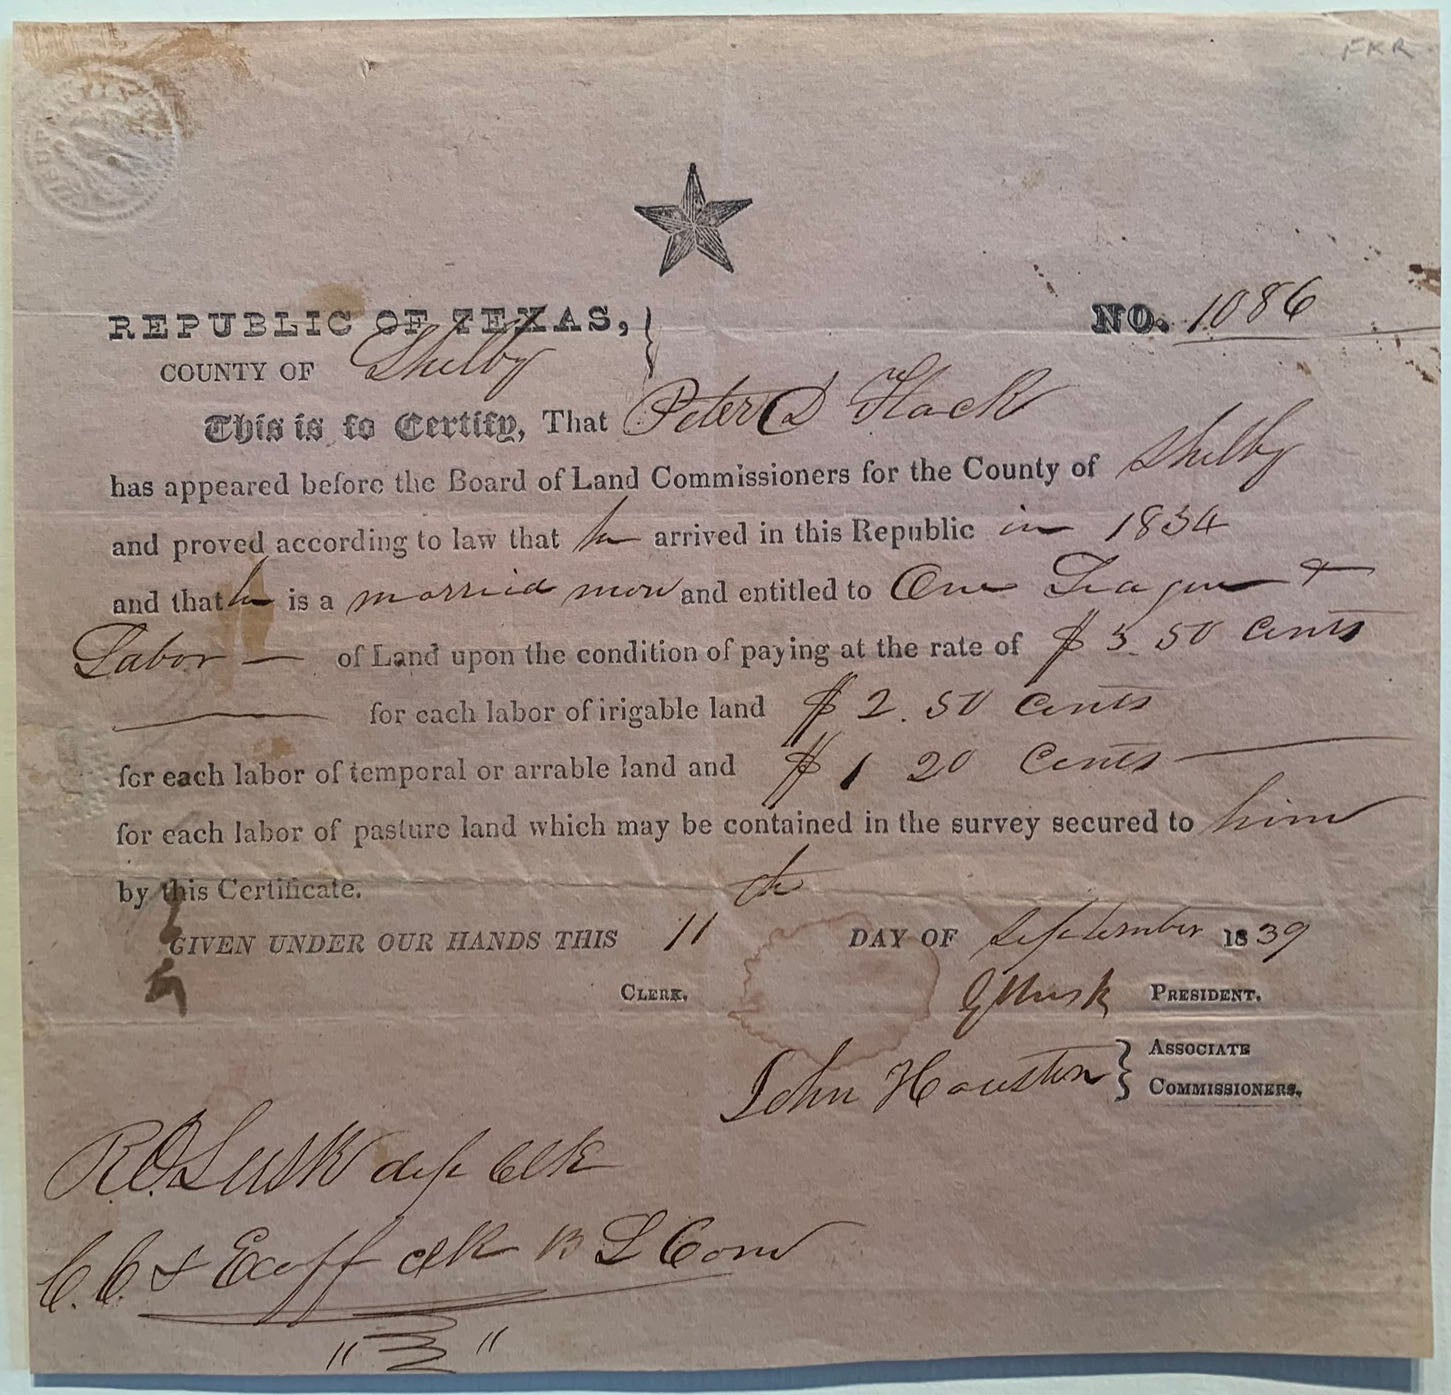 FKR
REPUBLIC OF TEXAS, NO. 1086
COUNTY OF Shelby
This is to Certify, That Peter D Flack
has appeared before the Board of Land Commissioners for the County of Shelby
and proved according to law that he arrived in this Republic in 1834
and that he is a married man and entitled to One League &
Labor — of Land upon the condition of paying at the rate of $ 3.50 cents
for each labor of irigable land $ 2.50 cents
for each labor of temporal or arrable land and $ 1 20 cents
for each labor of pasture land which may be contained in the survey secured to him
by this Certificate.
GIVEN UNDER OUR HANDS THIS 11th DAY OF September 1839
CLERK. PRESIDENT.
John Houston } ASSOCIATE
COMMISSIONERS.
R.O. Lusk dep Clk
C. C. & Exoff clk B L Com